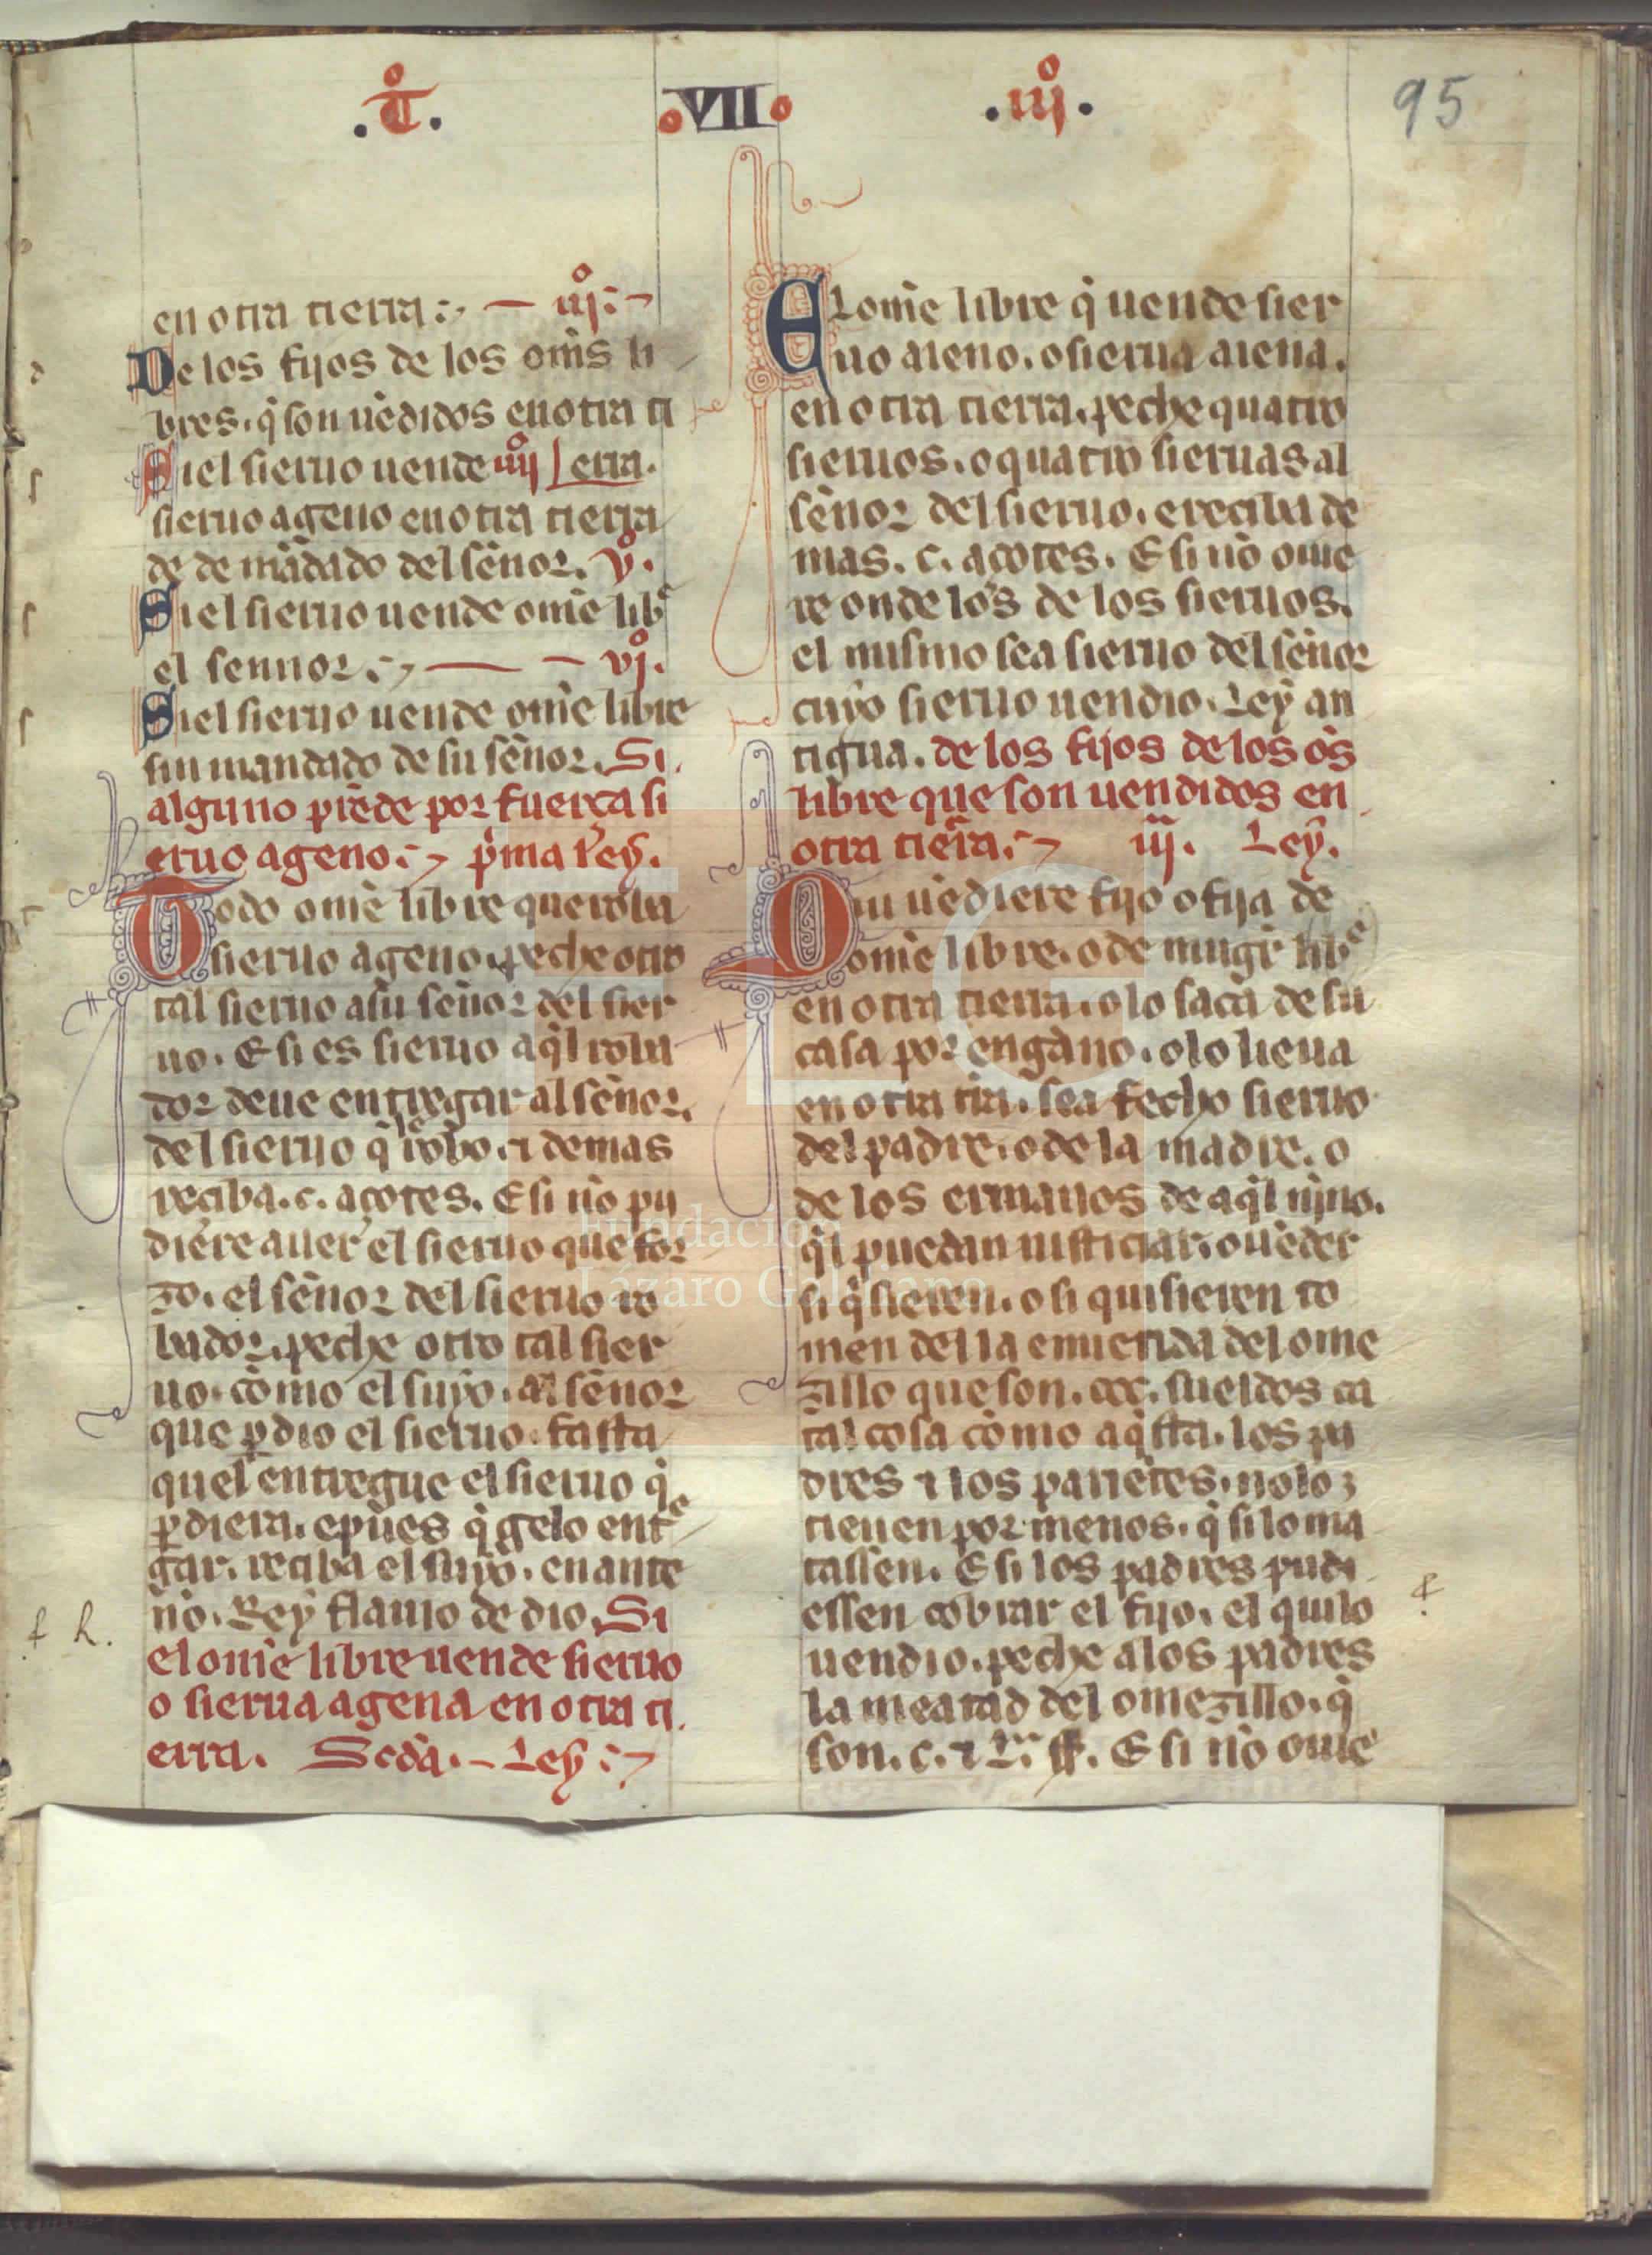 .T̊. VII .iij̊. 95
en otra tierra: iij̊:
De los fijos de los om̄s li
bres. q̄ son uēdidos en otra ti
Si el sieruo uende iiij̊ erra.
sieruo ageno en otra tierra
de de mādado del sēnor. v̊.
Si el sieruo uende omē libᵉ
el sennor: vj̊.
Si el sieruo uende omē libre
sin mandado de su sēnor. Si
alguno prēde por fuerça si
eruo ageno: p̄ma Ley.
Todo omē libre que roba
sieruo ageno. peche otro
tal sieruo a su sēnor del sier
uo. E si es sieruo aq̄l roba
dor deue entregar al sēnor.
del sieruo q̄ le robo. ⁊ demas
reciba. c. açotes. E si nō pu
diere auer el sieruo que for
zo. el sēnor del sieruo ro
bador. peche otro tal sier
uo. cōmo el suyo. al sēnor
que ꝑdio el sieruo. fasta
quel entregue el sieruo q̄
ꝑdiera. e pues q̄ gelo entᵉ
gar. reciba el suyo. en ante
nō. Rey flauio de dio. Si
f h.
el omē libre uende sieruo
o sierua agena en otra ti
erra. Scdā. Ley:
El omē libre q̄ uende sier
uo aieno. o sierua aiena.
en otra tierra. peche quatro
sieruos. o quatro sieruas al
sēnor del sieruo. e reciba de
mas. c. açotes. E si nō ouie
re onde los de los sieruos.
el mismo sea sieruo del sēnor
cuyo sieruo uendio. Ley an
tigua. de los fijos de los ōs
libre que son uendidos en
otra tiēra: iij. Ley.
Qui uēdiere fijo o fija de
omē libre. o de mugr̄ libᵉ
en otra tierra. o lo saca de su
casa por engāno. o lo lieua
en otra tīra. sea fecho sieruo
del padre. o de la madre. o
de los ermanos de aq̄l nīno.
q̄l puedan iusticiar. o uēder
si q̄sieren. o si quisieren to
men della emienda del ome
zillo que son. ccc. sueldos ca
tal cosa cōmo aq̄sta. los pa
dres ⁊ los pariētes. no loz
tienen por menos. q̄ si lo ma
tassen. E si los padres pudi
essen cobrar el fijo. el qui lo
uendio. peche a los padres
la meatad del omezillo. q̄
son. c. ⁊ L. ss. E si nō ouie
Fundación
Lázaro Galdiano
FLG